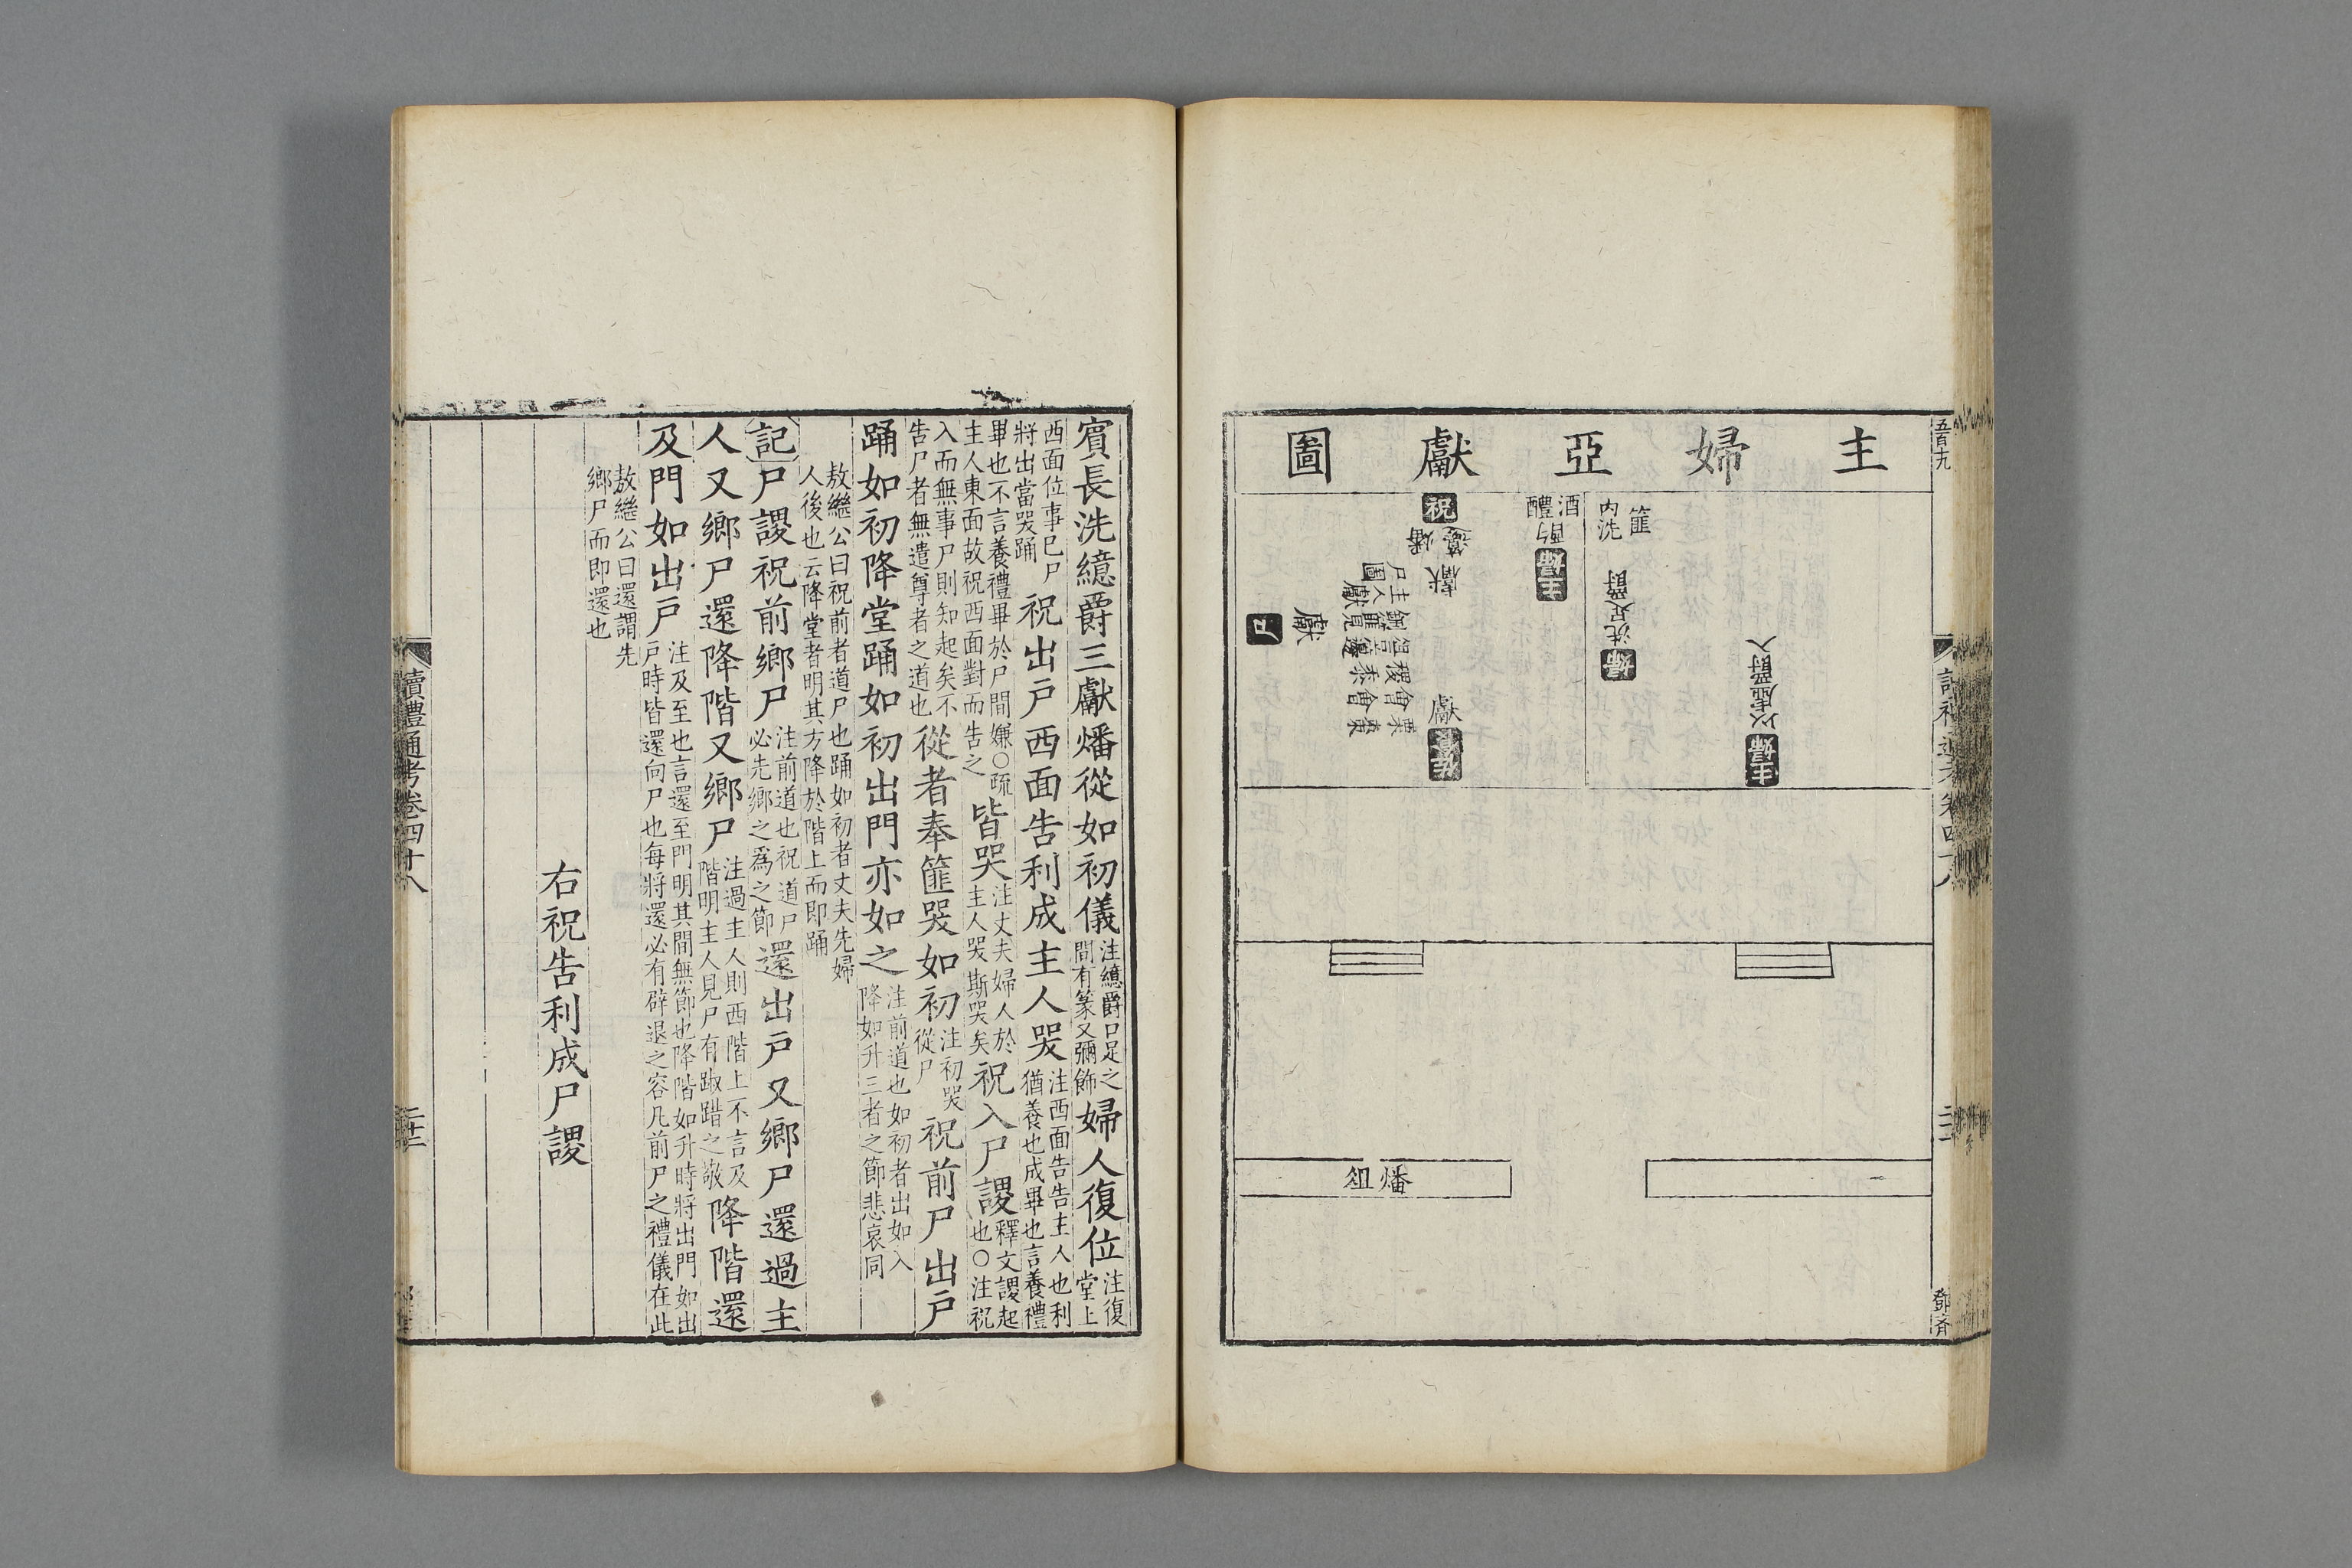 主婦亞獻圖
五百九
篚
内洗
洗足爵
婦
以虛爵入
主婦
酒
醴
酌
主婦
祝
籩燔
獻
獻
佐食
獻
尸
燔俎
鄧済
賓長洗繶爵三獻燔從如初儀注繶爵口足之間有篆又彌飾婦人復位注復堂上
西面位事巳尸將出當哭踊祝出戸西面告利成主人哭注西面告告主人也利猶養也成畢也言養禮
畢也不言養禮畢於尸間嫌○疏主人東面故祝西面對而告之皆哭注丈夫婦人於主人哭斯哭矣祝入尸謖釋文謖起也○注祝
入而無事尸則知起矣不告尸者無遣尊者之道也從者奉篚哭如初注初哭從尸祝前尸出戸
踊如初降堂踊如初出門亦如之注前道也如初者出如入降如升三者之節悲哀同
敖繼公曰祝前者道尸也踊如初者丈夫先婦人後也云降堂者明其方降於階上而即踊
記尸謖祝前鄉尸注前道也祝道尸必先鄉之爲之節還出戸又鄉尸還過主
人又鄉尸還降階又鄉尸注過主人則西階上不言及階明主人見尸有踧踖之敬降階還
及門如出戸注及至也言還至門明其間無節也降階如升時將出門如出戸時皆還向尸也每將還必有辟退之容凡前尸之禮儀在此
敖繼公曰還謂先鄉尸而即還也
右祝告利成尸謖
讀禮通考卷四十八
二十二